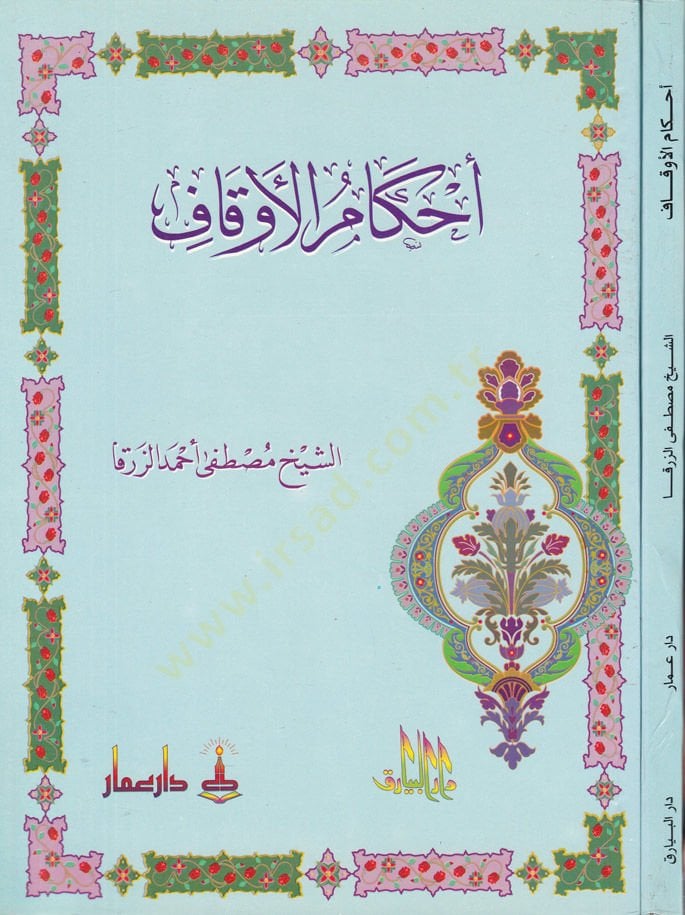 أَحْكَامُ الأَوْقَافِ
الشيخ مُصْطَفى أحمد الزرقا
دار البيارق
دار عمار
www.irsad.com.tr
أحكام الأوقاف
الشيخ مصطفى الزرقا
دار عمار
دار البيارق